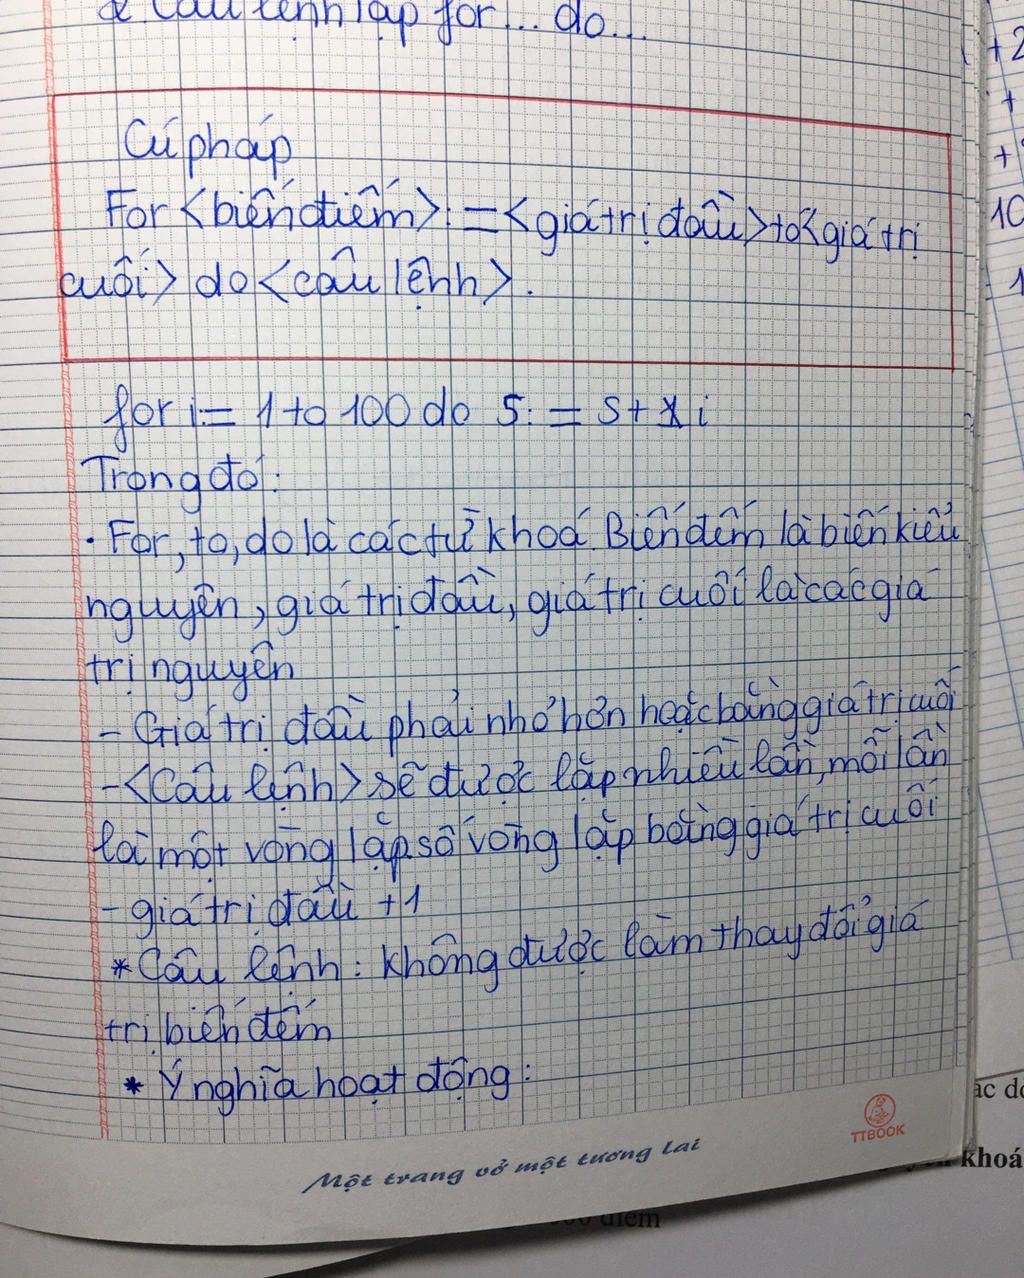 2 Câu lệnh lặp for... do...
Cú pháp
For <biến điếm>: = <giá trị đầu> to <giá trị
cuối> do <câu lệnh>.
for i:= 1 to 100 do s: = s + i
Trong đó:
. For, to, do là các từ khoá. Biến đếm là biến kiểu
nguyên, giá trị đầu, giá trị cuối là các giá
trị nguyên
- Giá trị đầu phải nhỏ hơn hoặc bằng giá trị cuối
- <Câu lệnh> sẽ được lặp nhiều lần, mỗi lần
là một vòng lặp. số vòng lặp bằng giá trị cuối
- giá trị đầu + 1
* Câu lệnh: không được làm thay đổi giá
trị biến đếm
* Ý nghĩa hoạt động:
TTBOOK
Một trang vở một tương lai
+2
+
+
10
1
khoá
điểm